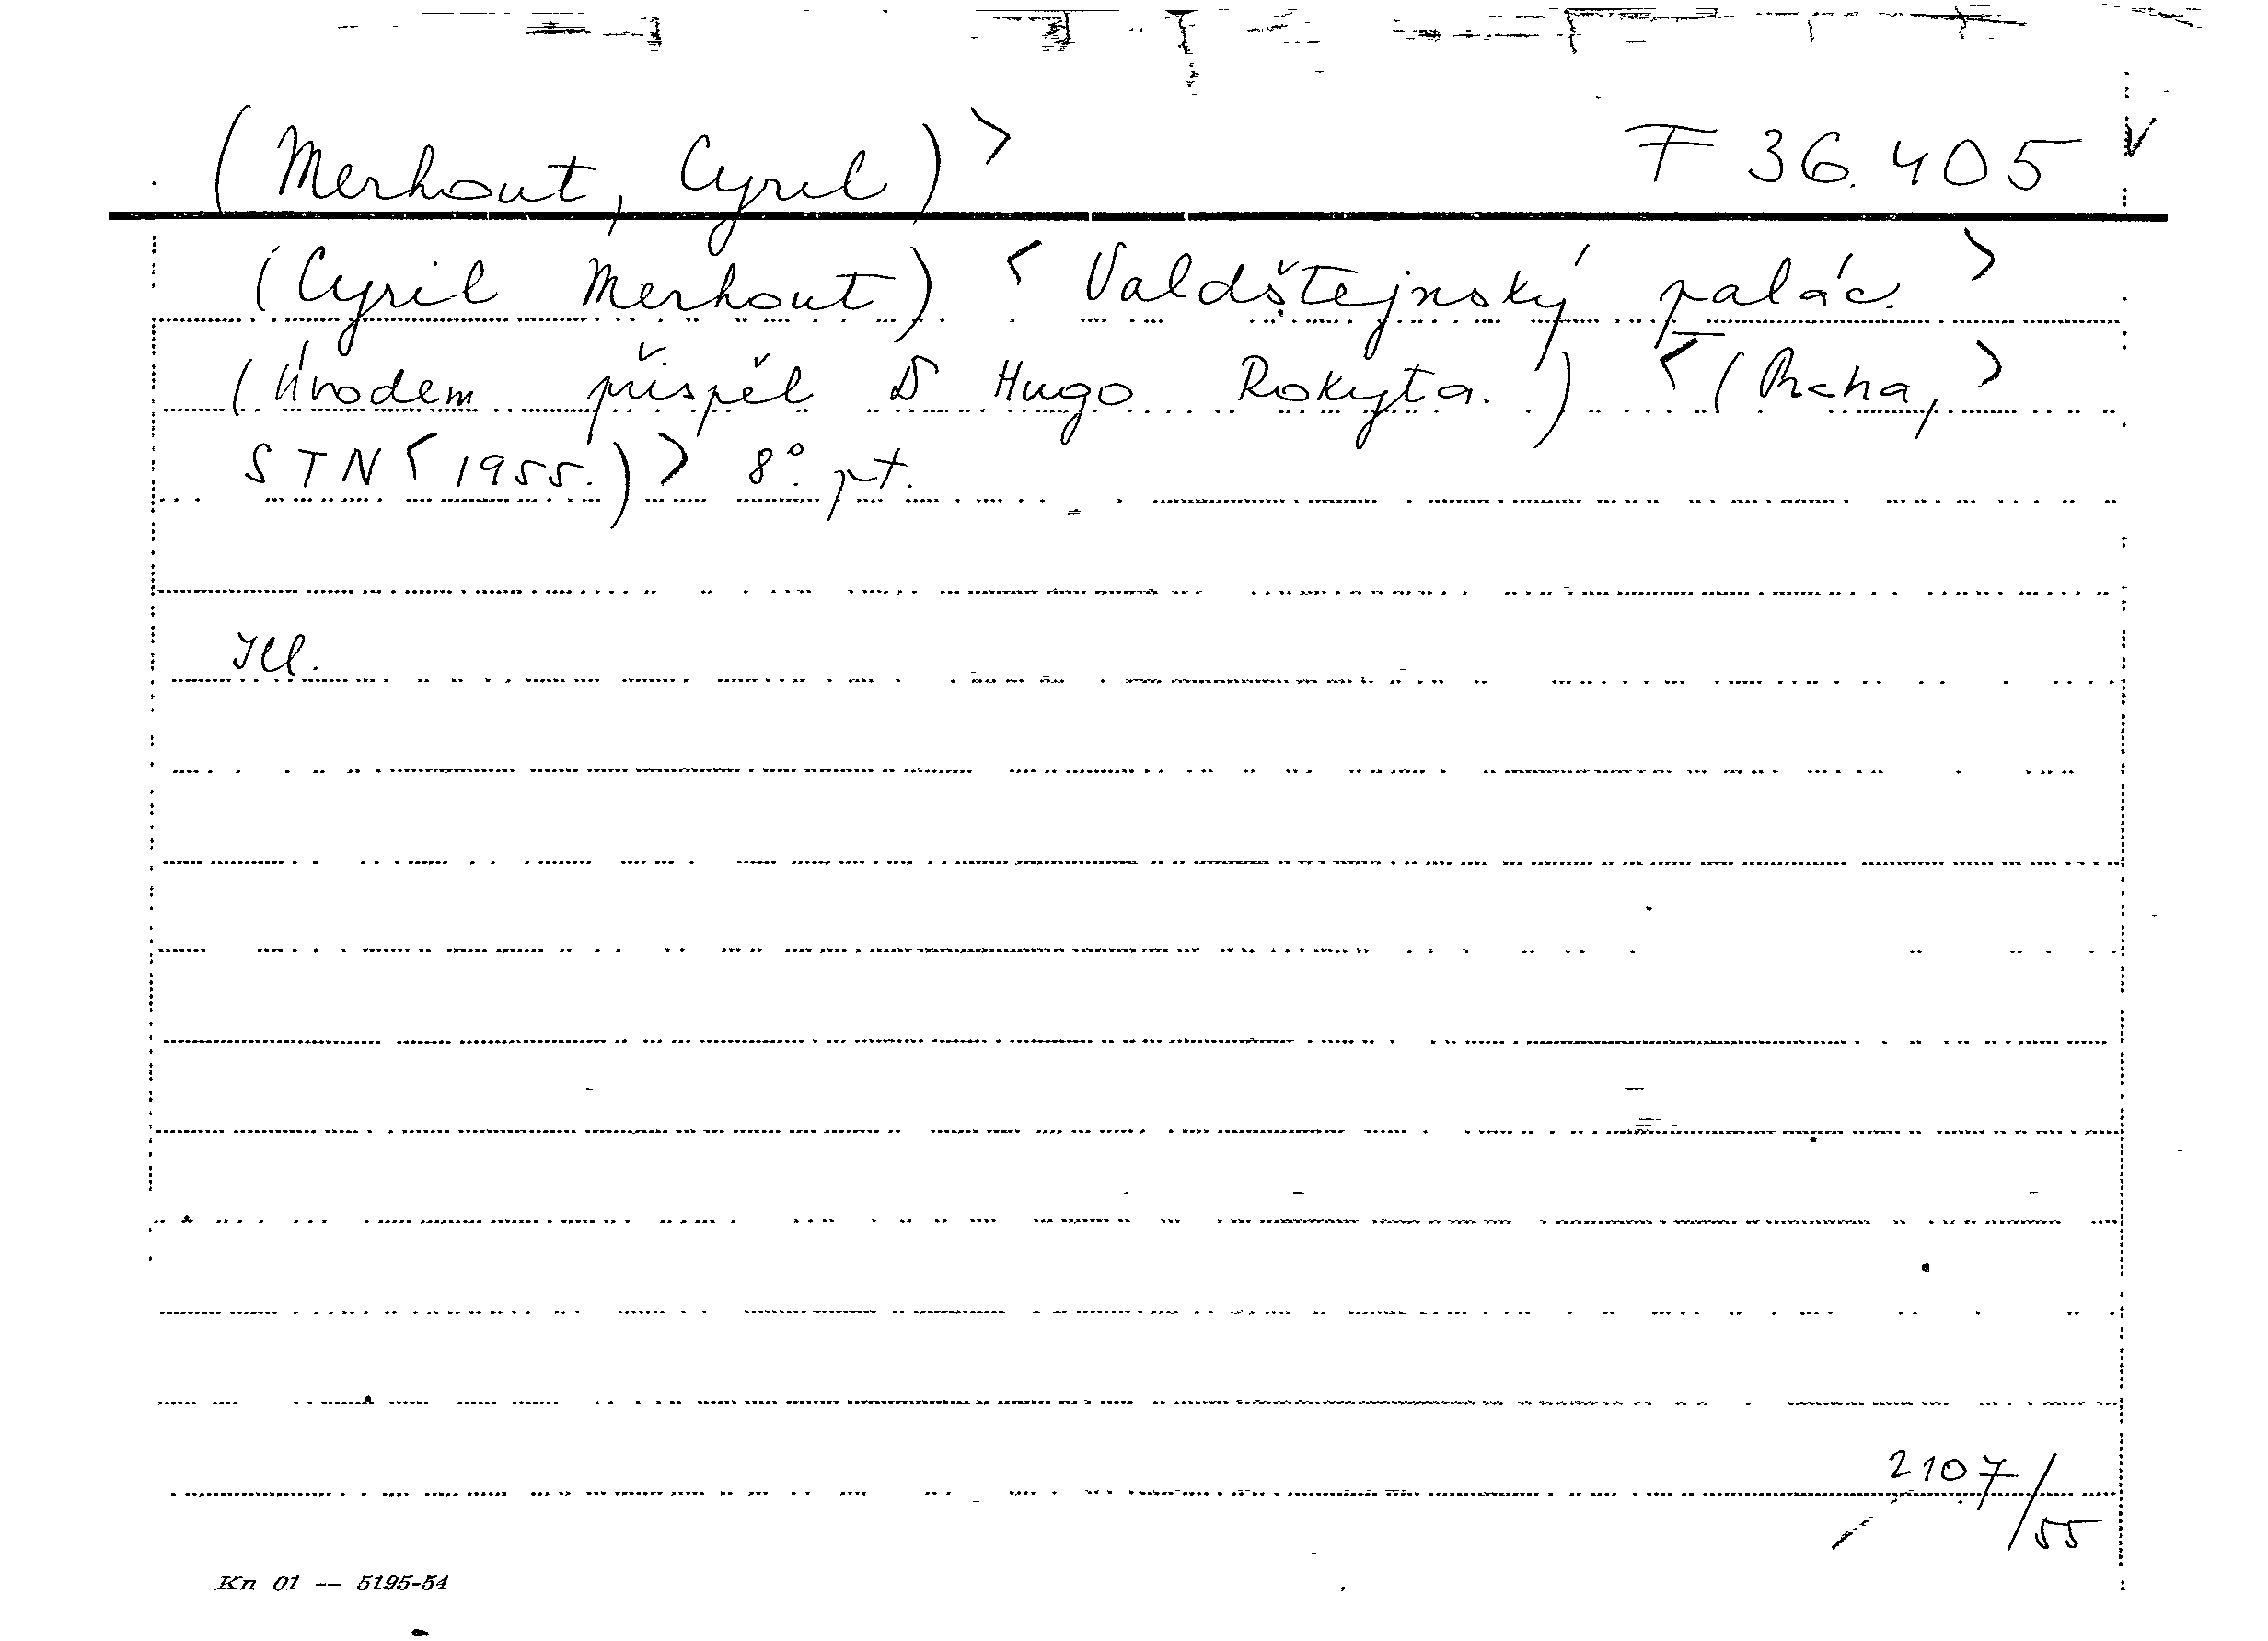 (Merhout, Cyril)> F 36.405 V
(Cyril Merhout) < Valdštejnský palác. >
(Úvodem přispěl Dr Hugo Rokyta.) < (Praha, >
STN < 1955.) > 8°. pt.
Ill.
2107/55
Kn 01 — 5195-54